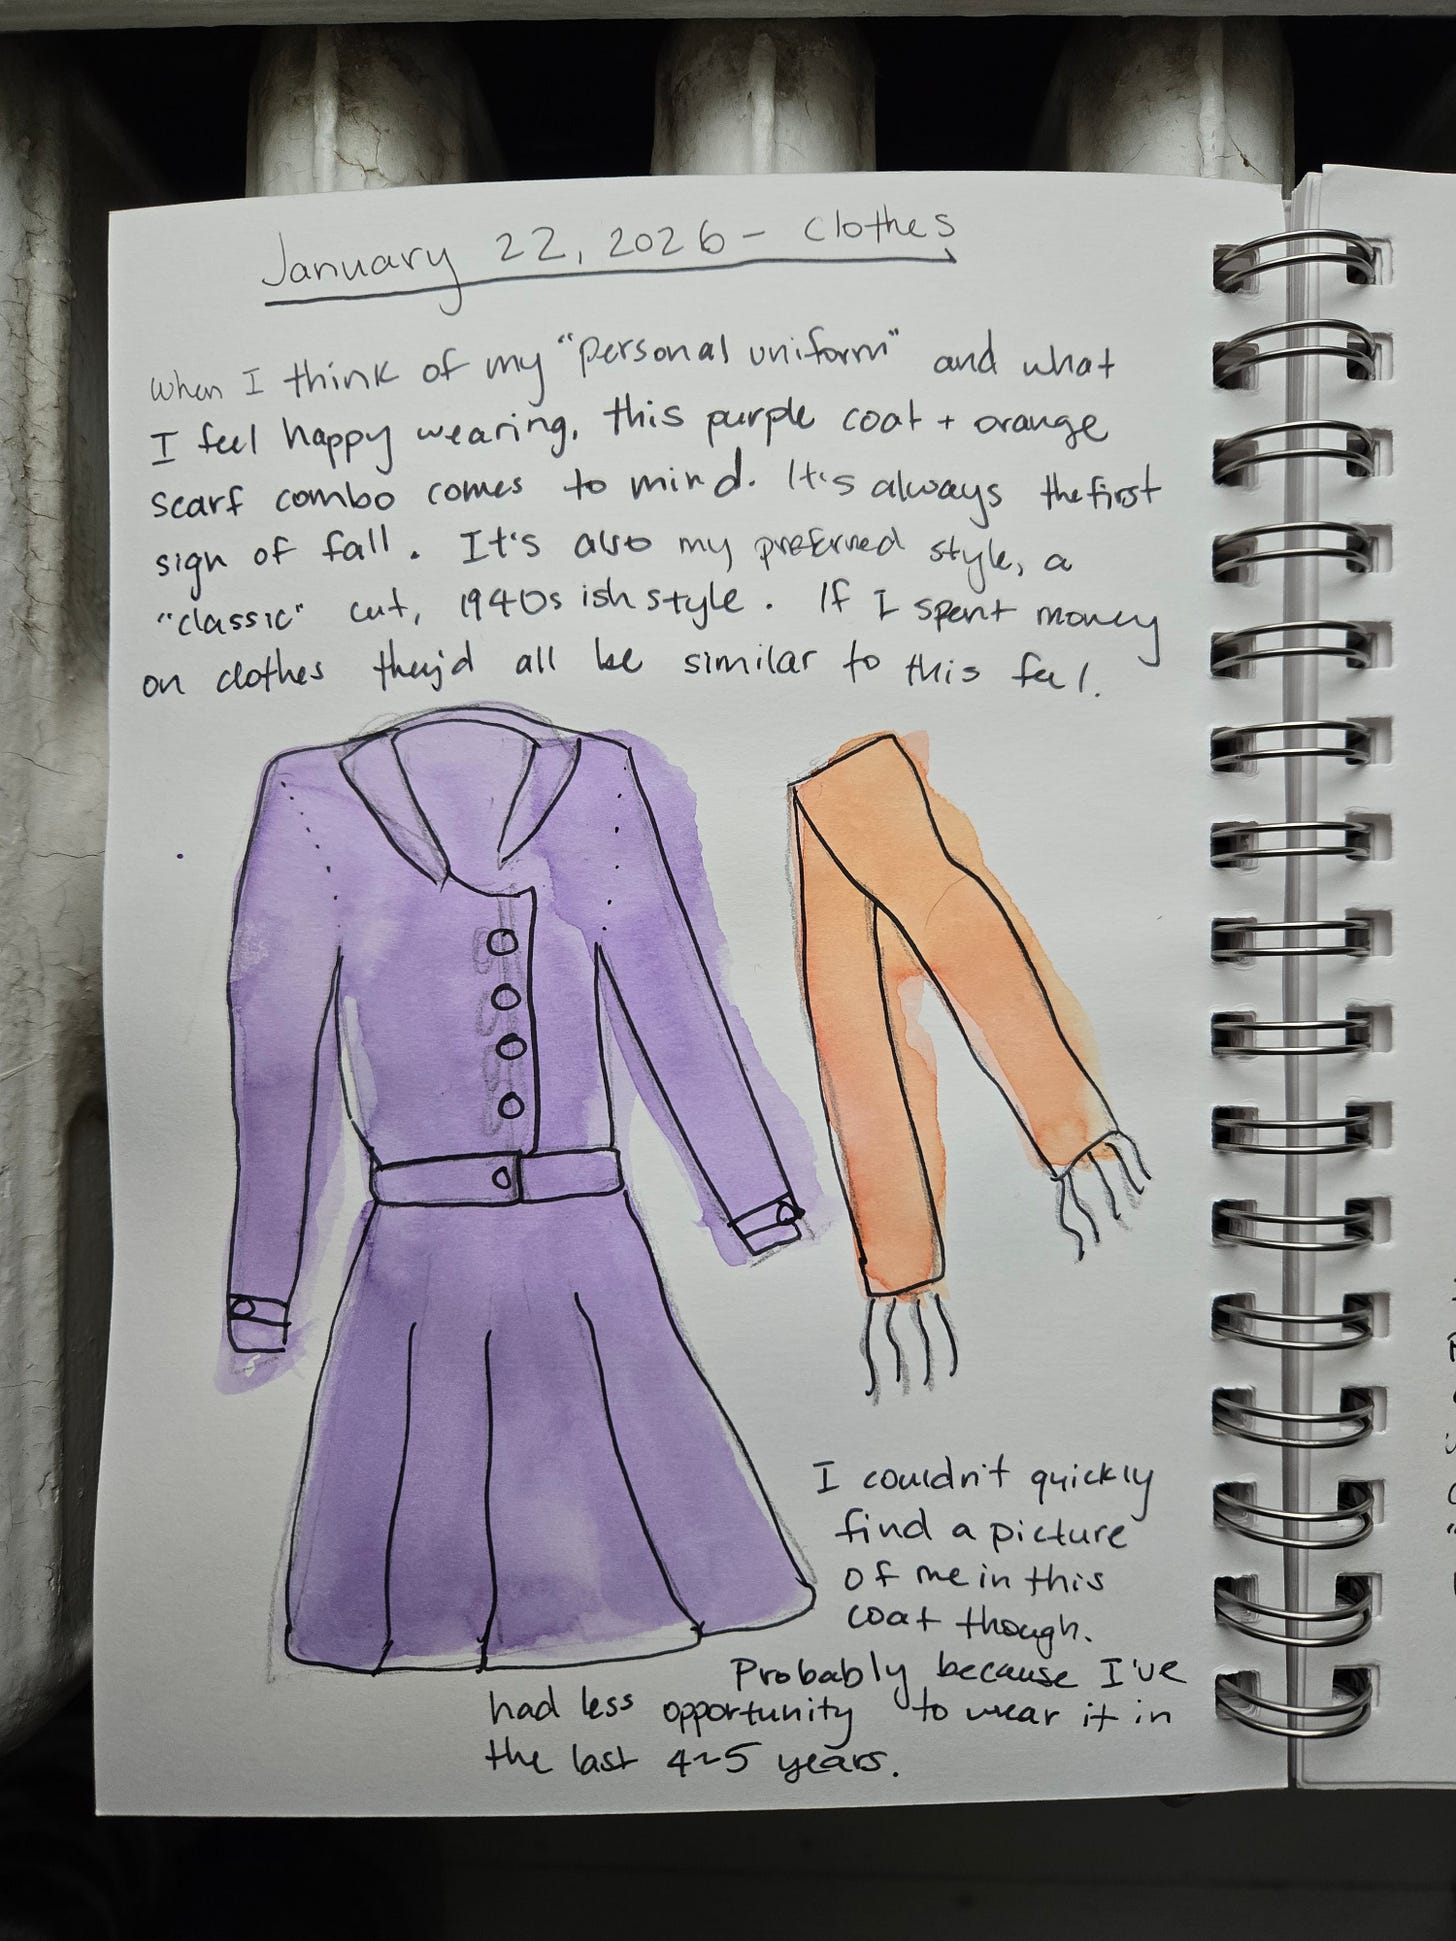 January 22, 2026 - Clothes
When I think of my "personal uniform" and what
I feel happy wearing, this purple coat + orange
scarf combo comes to mind. It's always the first
sign of fall. It's also my preferred style, a
"classic" cut, 1940s ish style. If I spent money
on clothes they'd all be similar to this feel.
I couldn't quickly
find a picture
of me in this
coat though.
Probably because I've
had less opportunity to wear it in
the last 4~5 years.